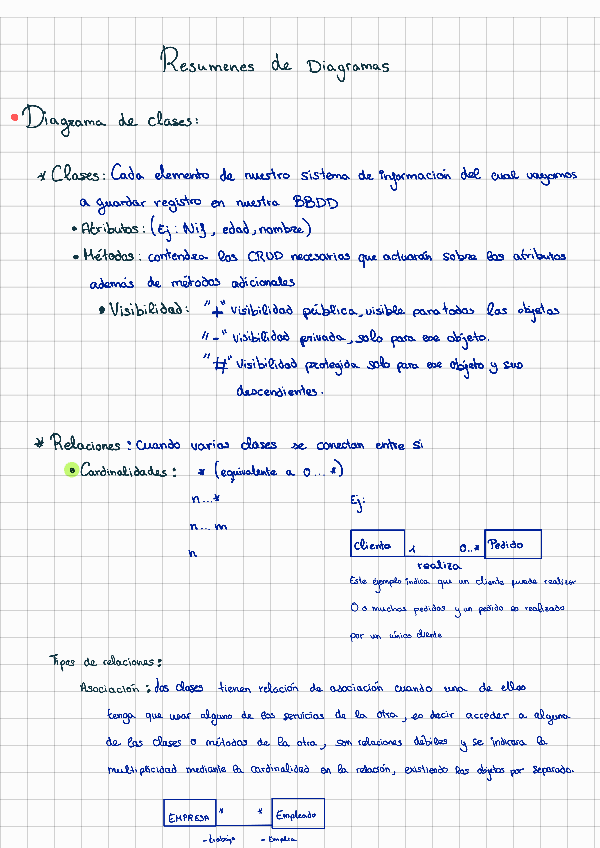 Resumenes de Diagramas
• Diagrama de clases:
* Clases: Cada elemento de nuestro sistema de información del cual vayamos
a guardar registro en nuestra BBDD
• Atributos: (Ej: Nif, edad, nombre)
• Métodos: contendra los CRUD necesarios que actuarán sobre los atributos
además de métodos adicionales
• Visibilidad: "+" visibilidad pública, visible para todas los objetos
"-" visibilidad privada, solo para ese objeto.
"#" visibilidad protegida solo para ese objeto y sus
descendientes.
* Relaciones: Cuando varias clases se conectan entre si
• Cardinalidades: * (equivalente a 0...*)
n...*
n...m
n
Ej:
Cliente 1 0..* Pedido
realiza
Este ejemplo indica que un cliente puede realizar
0 o muchos pedidos y un pedido es realizado
por un único cliente
Tipos de relaciones:
Asociación: dos clases tienen relación de asociación cuando una de ellas
tenga que usar alguno de los servicios de la otra, es decir acceder a alguna
de las clases o métodos de la otra, son relaciones débiles y se indicara la
multiplicidad mediante la cardinalidad en la relación, existiendo los objetos por separado.
EMPRESA * * Empleado
- trabaja - Emplea